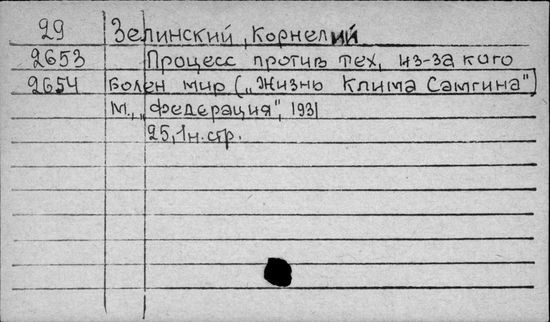 29 Зелинский, Корнелий
2653 Процесс против тех, из-за кого
2654 болен мир („Жизнь Клима Самгина")
М., „Федерация", 1931
25,1 н. стр.